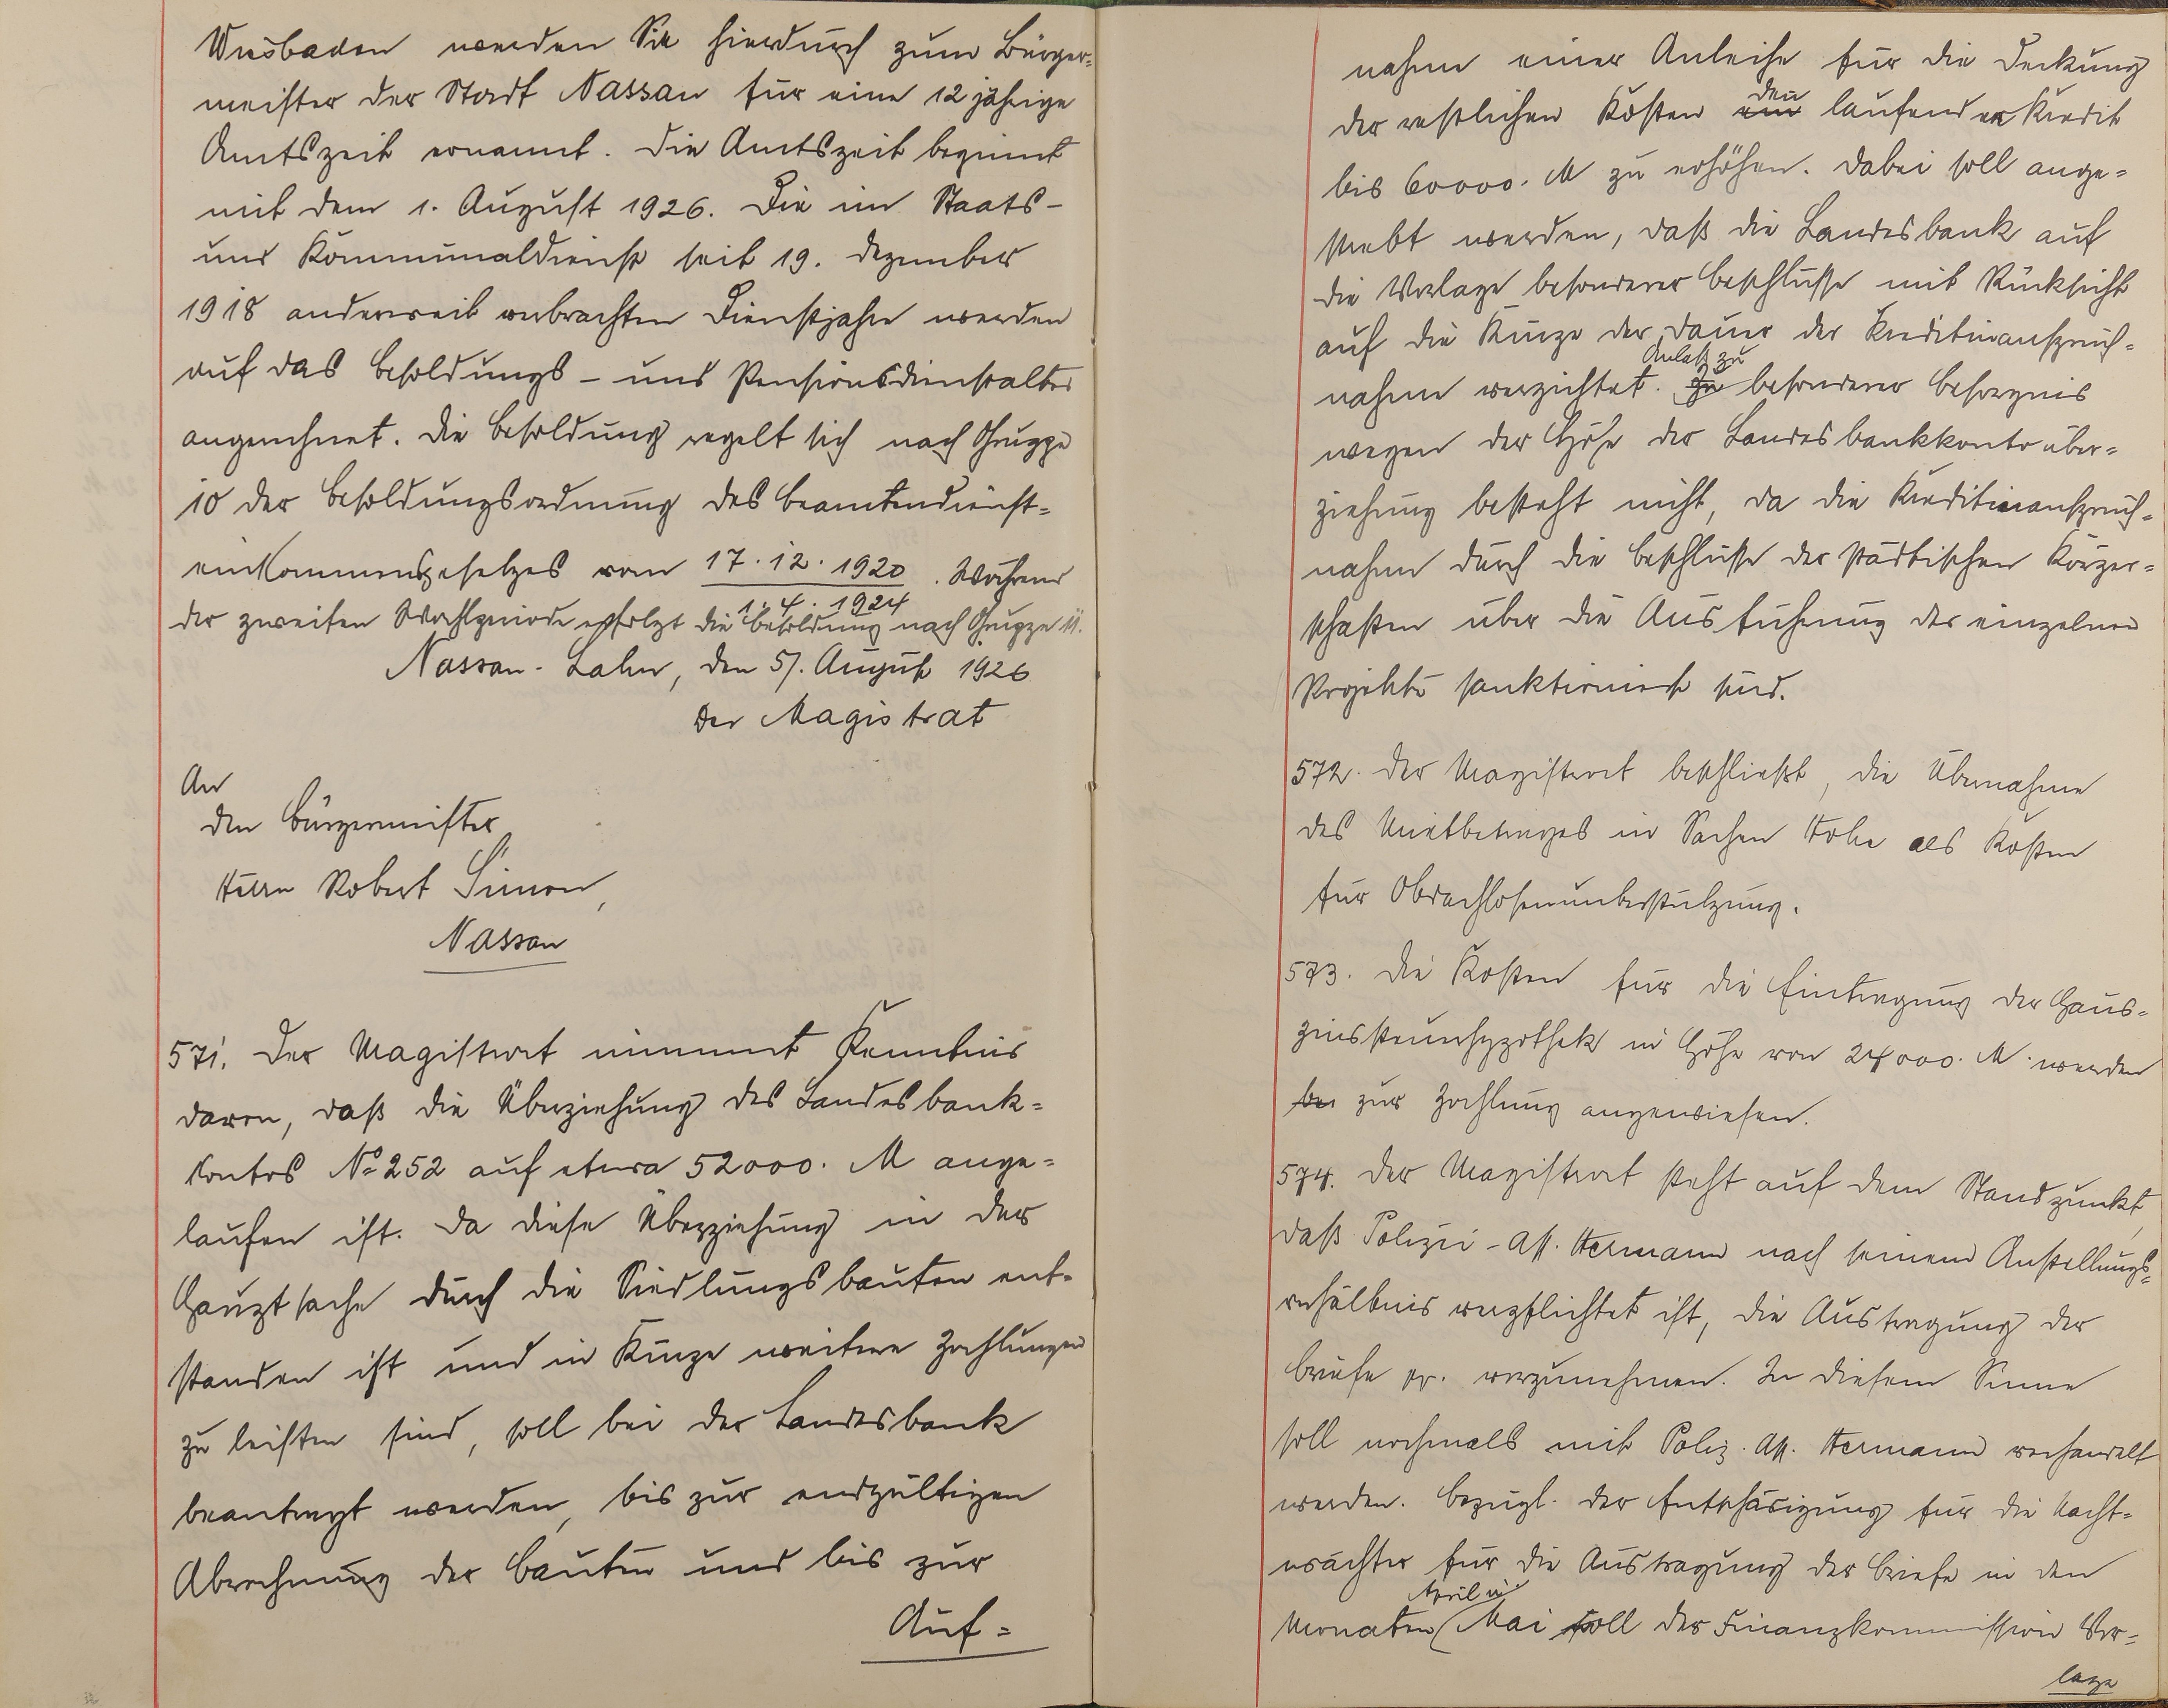 Wiesbaden werden Sie hierdurch zum Bürger-
meister der Stadt Nassau für eine 12 jährige
Amtszeit ernannt. Die Amtszeit beginnt
mit dem 1. August 1926. Die im Staats-
und Kommunaldienst seit 19. Dezember
1918 anderweit verbrachten Dienstjahre werden
auf das Besoldungs- und Pensionsdienstalter
angerechnet. Die Besoldung regelt sich nach Gruppe
10 der Besoldungsordnung des Beamtendienst-
einkommensgesetzes vom 17.12.1920. Während
1.4.1924
der zweiten Wahlperiode erfolgt die Besoldung nach Gruppe 11.
Nassau-Lahn, den 5. August 1926
Der Magistrat
An
den Bürgermeister
Herrn Robert Simon,
Nassau
571. Der Magistrat nimmt Kenntnis
davon, daß die Überziehung des Landesbank-
kontos No 252 auf etwa 52000. M ange-
laufen ist. Da diese Überziehung in der
Hauptsache durch die Siedlungsbauten ent-
standen ist und in Kürze weitere Zahlungen
zu leisten sind, soll bei der Landesbank
beantragt werden, bis zur endgültigen
Abrechnung der Bauten und bis zur
Auf-
nahme einer Anleihe für die Deckung
der restlichen Kosten den laufenden Kredit
bis 60000. M zu erhöhen. Dabei soll ange-
strebt werden, daß die Landesbank auf
die Vorlage besonderer Beschlüsse mit Rücksicht
auf die Kürze der Dauer der Kreditinanspruch-
nahme verzichtet. Anlaß zu besonderer Besorgnis
wegen der Höhe der Landesbankkontoüber-
ziehung besteht nicht, da die Kreditinanspruch-
nahme durch die Beschlüsse der städtischen Körper-
schaften über die Ausführung der einzelnen
Projekte sanktioniert sind.
572. Der Magistrat beschließt, die Übernahme
des Mietbetrages in Sachen als Kosten
für Obdachlosenunterstützung.
573. Die Kosten für die Eintragung der Haus-
zinssteuerhypothek in Höhe von 24000. M. werden
zur Zahlung angewiesen.
574. Der Magistrat steht auf dem Standpunkt,
daß Polizei-Ass. Hermann nach seinem Anstellungs-
verhältnis verpflichtet ist, die Austragung der
Briefe pp. vorzunehmen. In diesem Sinne
soll nochmals mit Poliz. Ass. Hermann verhandelt
werden. Bezügl. der Entschädigung für die Nacht-
wächter für die Austragung der Briefe in den
Monaten April u. Mai soll der Finanzkommission Vor-
lage